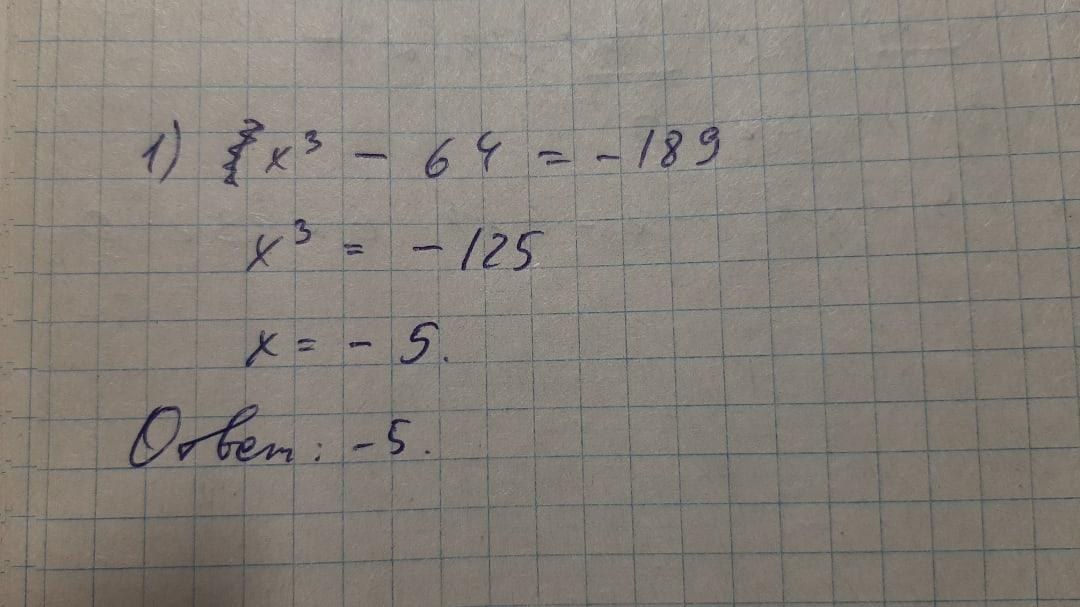 1) x³ - 64 = -189
x³ = -125
x = - 5.
Ответ: -5.